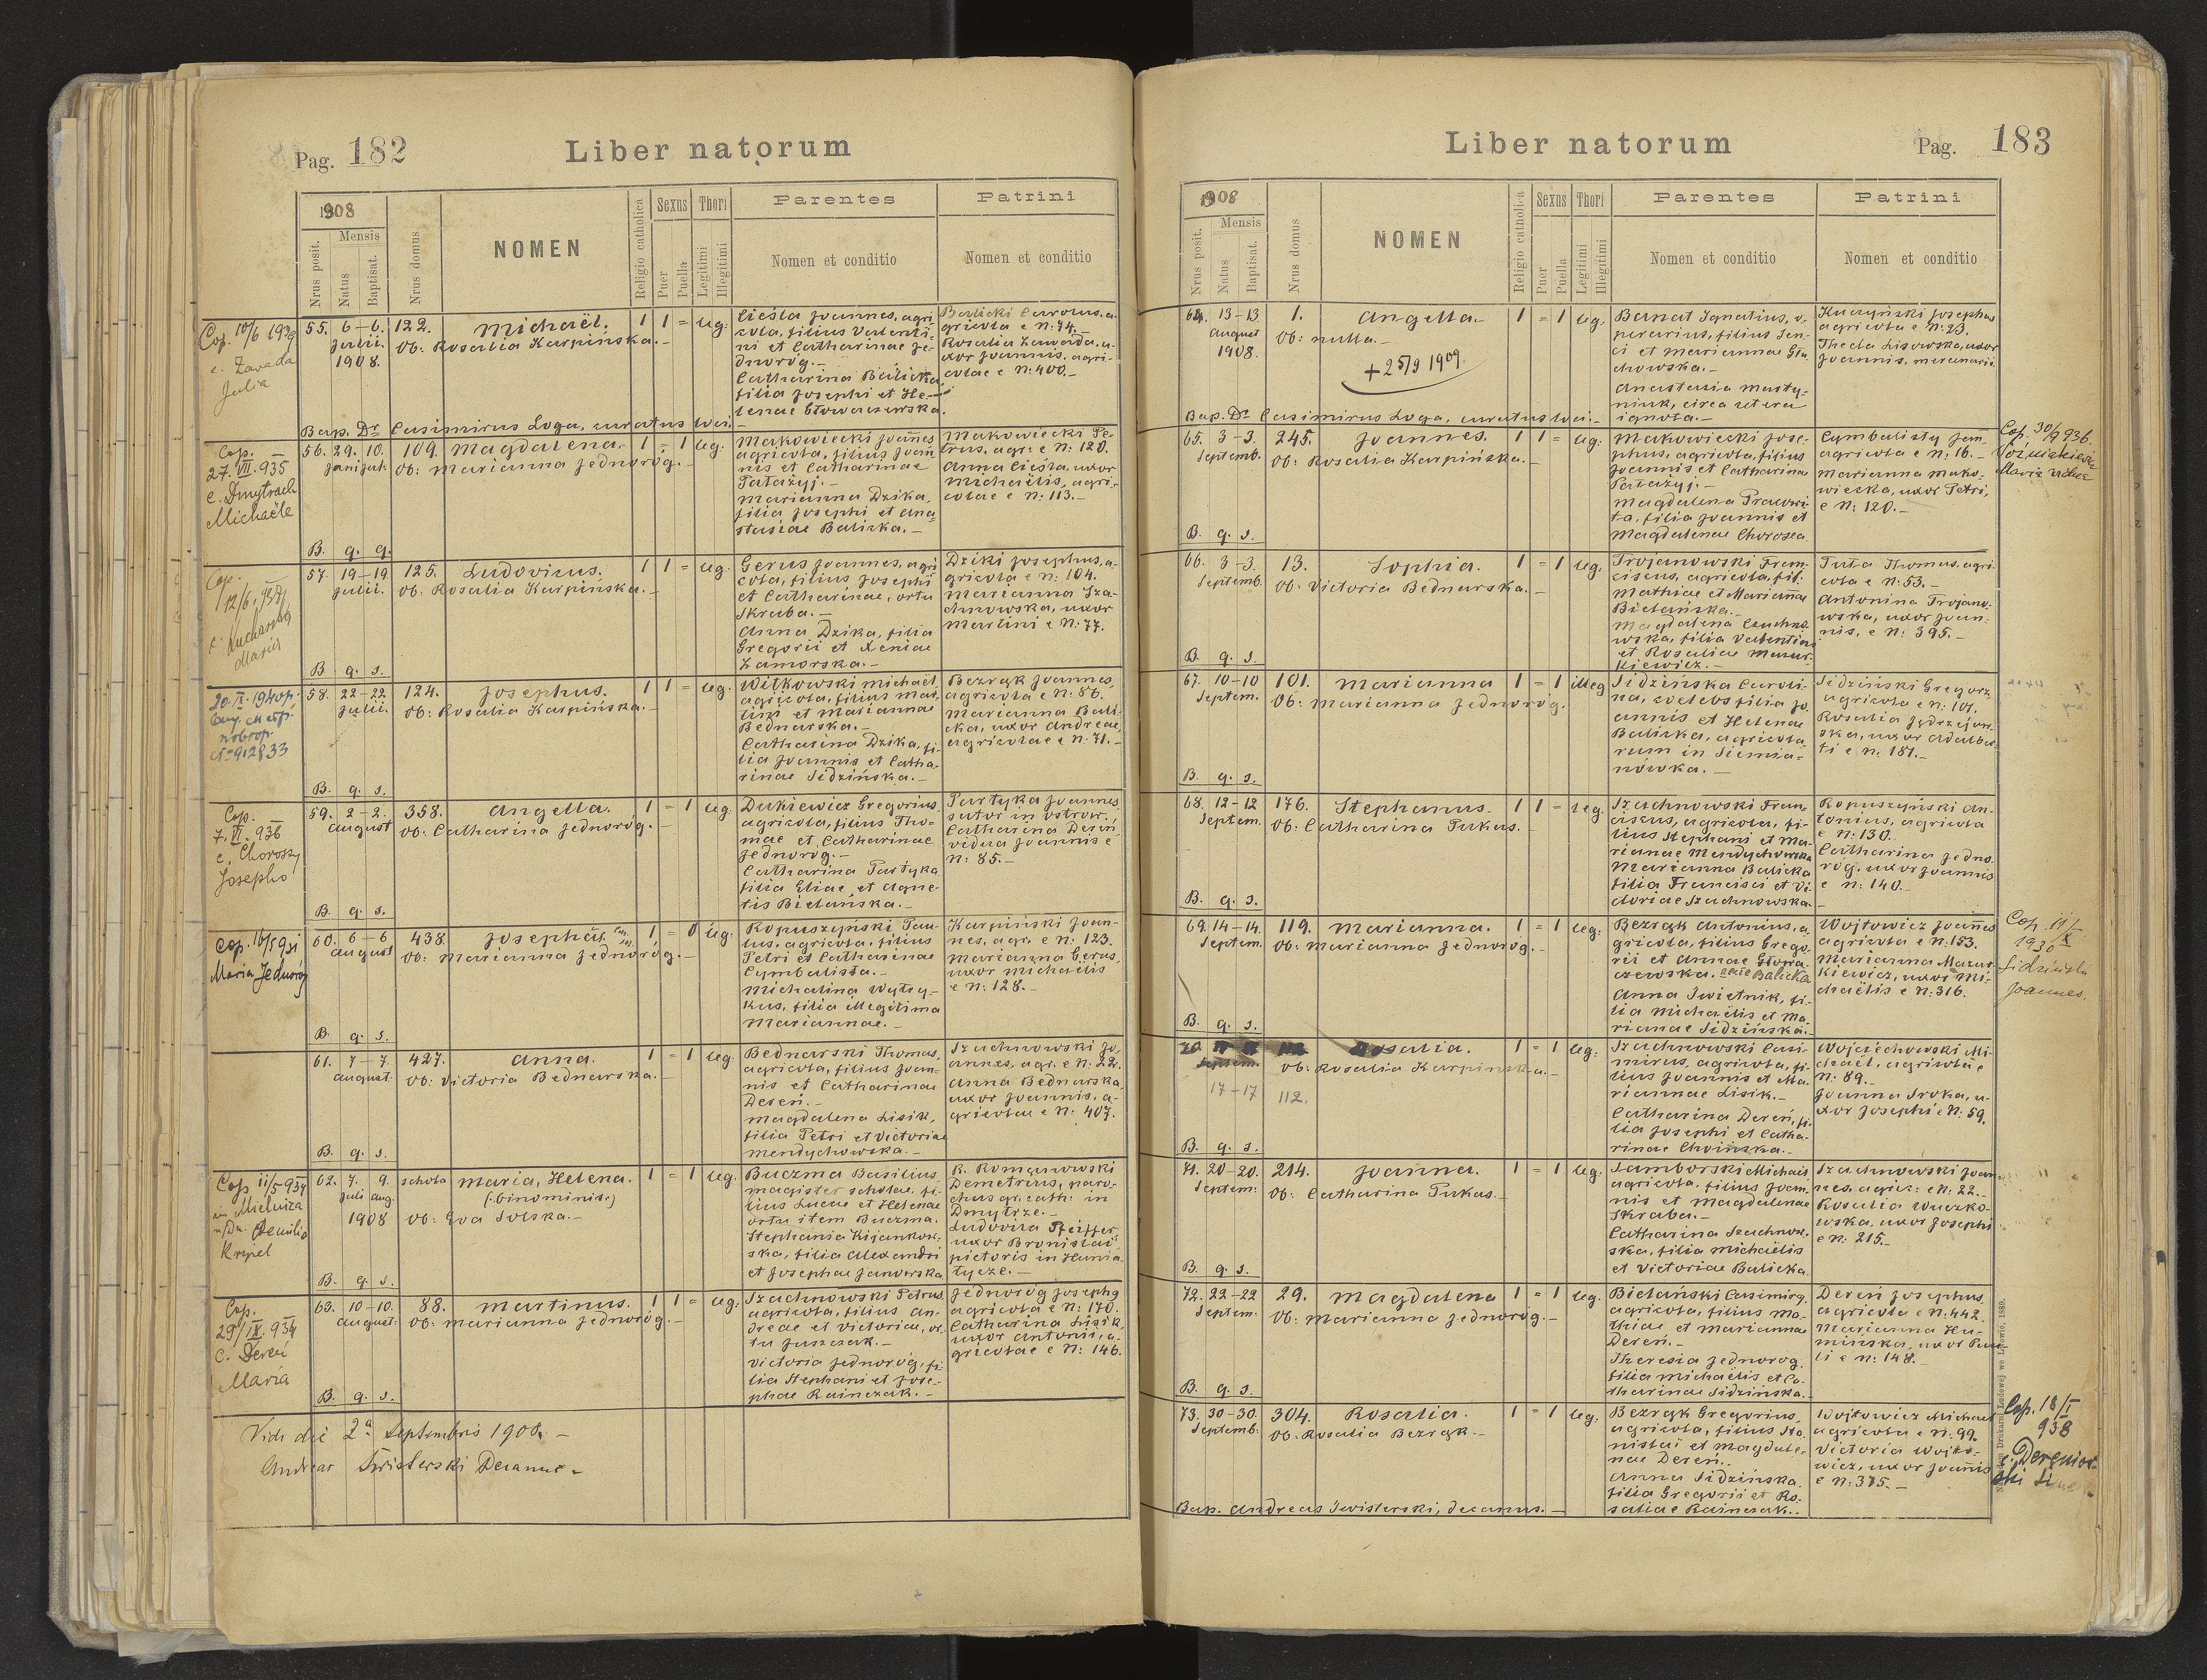 Pag. 182
Liber natorum
1908
Mensis
Nrus posit.
Natus
Baptisat.
Nrus domus
NOMEN
Religio catholica
Sexus
Puer
Puella
Thori
Legitimi
Illegitimi
Parentes
Nomen et conditio
Patrini
Nomen et conditio
Cop. 10/6 1939
c. Zavada
Julia
55. 6-6. 122. Michaël. 1 1 = leg.
Julii. Ob: Rosalia Karpińska.-
1908.
Cieśla Joannes, agri
cola, filius Valenti-
ni et Catharinae Je-
dnoróg.-
Catharina Balicka,
filia Josephi et He-
lenae Słowaczewska.
Balicki Carolus, a-
gricola e N: 74.-
Rosalia Zawada, u-
xor Joannis, agri-
colae e N: 400.-
Bap. Dr Casimirus Loga, curatus loci.-
Cop.
27.VII.935
c. Dmytrach
Michaële
56. 29. 10. 109. Magdalena. 1 - 1 leg.
Juni Jul. Ob: Marianna Jednoróg.-
Makowiecki Joannes
agricola, filius Joan
nis et Catharinae
Patażyj.-
Marianna Dzika,
filia Josephi et Ana-
stasiae Balicka.-
Makowiecki Pe-
trus, agr: e N: 120.
Anna Cieśla, uxor
Michaëlis, agri-
colae e N: 113.-
B. q. q.
Cop.
12/6.937
c. Kucharska
Maria
57. 19-19. 125. Ludovicus. 1 1 = leg.
Julii. Ob: Rosalia Karpińska.-
Gerus Joannes, agri
cola, filius Josephi
et Catharinae, ortu
Skraba.-
Anna Dzika, filia
Gregorii et Xeniae
Zamorska.-
Dziki Josephus, a-
gricola e N: 104.
Marianna Sza-
chnowska, uxor
Martini e N: 77.
B q. s.
20.IX.1940 p.
No 912833
58. 22-22. 124. Josephus. 1 1 = leg.
Julii. Ob: Rosalia Karpińska.-
Witkowski Michaël,
agricola, filius Mar-
tini et Mariannae
Bednarska.-
Catharina Dzika, fi-
lia Joannis et Catha-
rinae Sidzińska.-
Bezrąk Joannes,
agricola e N: 86.
Marianna Bali-
cka, uxor Andreae,
agricolae e N: 71.-
B. q. s.
Cop.
7.VI.936
c. Choroszy
Josepho
59. 2-2. 358. Angella. 1 - 1 leg.
August Ob: Catharina Jednoróg.-
Dukiewicz Gregorius,
agricola, filius Tho-
mae et Catharinae
Jednoróg.-
Catharina Partyka
filia Eliae et Agne-
tis Bielańska.-
Partyka Joannes,
sutor in Ostrow.,
Catharina Dereń,
vidua Joannis e
N: 85.-
B. q. s.
Cop. 16/5 931
Maria Jednoróg
60. 6-6 438. Josephus. 1 - leg.
August Ob: Marianna Jednoróg.-
Ropuszyński Pau-
lus, agricola, filius
Petri et Catharinae
Cymbalista.-
Michalina Wytry-
kus, filia illegitima
Mariannae.-
Karpiński Joan-
nes, agr. e N: 123.
Marianna Gerus,
uxor Michaëlis
e N: 128.-
B. q. s.
61. 7-7. 427. Anna. 1 - 1 leg.
August. Ob: Victoria Bednarska.-
Bednarski Thomas,
agricola, filius Joan-
nis et Catharinae
Dereń.-
Magdalena Lisik,
filia Petri et Victoriae
Mendychowska.-
Szachnowski Jo-
annes, agr. e N: 22.
Anna Bednarska,
uxor Joannis, a-
gricolae e N: 407.
B. q. s.
Cop 11/5 934
in Mielnica
n/Dn. Aemilia
Krypel
62. 7. 9. schola Maria, Helena. 1 - 1 leg.
Juli Aug. (:binominis:)
1908 Ob: Eva Solska.-
Buczma Basilius,
magister scholae, fi-
lius Lucae et Helenae
ortu item Buczma.
Stephania Kijankow-
ska, filia Alexandri
et Josephae Janowska
R. Romanowski
Demetrius, paro-
chus gr. cath: in
Dmytrze.-
Ludovica Pfeiffer,
uxor Bronislai
pictoris in Hunia-
tycze.-
B. q. s.
Cop.
29/IX.934
c. Dereń
Maria
63. 10-10. 88. Martinus. 1 1 = leg.
August: Ob: Marianna Jednoróg.-
Szachnowski Petrus,
agricola, filius An-
dreae et Victoriae, or-
tu Juszczak.-
Victoria Jednoróg, fi-
lia Stephani et Jose-
phae Rainczak.-
Jednoróg Josephg
agricola e N: 170.
Catharina Lisik,
uxor Antonis, a-
gricolae e N: 146.
B. q. s.
Vidi die 2a Septembris 1908.-
Andreas Świsterski Decanus
Liber natorum
Pag. 183
1908
Mensis
Nrus posit.
Natus
Baptisat.
Nrus domus
NOMEN
Religio catholica
Sexus
Puer
Puella
Thori
Legitimi
Illegitimi
Parentes
Nomen et conditio
Patrini
Nomen et conditio
64. 13-13 1. Angella.- 1 = 1 leg.
August Ob: nulla.-
1908.
+25/9 1909
Bernat Ignatius, o-
perarius, filius Sen-
ci et Mariannae Gła-
chowska.-
Anastasia Marty-
niuk, circa cetera
ignota.-
Kuczyński Josephus
agricola e N: 23.
Thecla Lisowska, uxor
Joannis, mercenarii.
Bap. Dr Casimirus Loga, curatus loci.-
65. 3-3. 245. Joannes. 1 1 = leg.
Septemb. Ob: Rosalia Karpińska.-
Makowiecki Jose-
phus, agricola, filius
Joannis et Catharina
Patażyj.-
Magdalena Prawori-
ta, filia Joannis et
Magdalenae Chorosea.
Cymbalisty Jan
agricola e N: 16.-
Marianna Mako-
wiecka, uxor Petri,
e N: 120.-
Cop. 30/9 936.
B. q. s.
66. 3-3. 13. Sophia. 1 = 1 leg.
Septemb. Ob: Victoria Bednarska.-
Trojanowski Fran-
ciscus, agricola, fil.
Mathiae et Mariannae
Bielańska.-
Magdalena Czuchno-
wska, filia Valentini
et Rosaliae Mazur-
kiewicz.-
Tuła Thomas, agri-
cola e N: 53.-
Antonina Trojano-
wska, uxor Joan-
nis, e N: 395.-
B. q. s.
67. 10-10 101. Marianna 1 = 1 illeg
Septem. Ob: Marianna Jednoróg.
Sidzińska Caroli-
na, coelebs filia Jo-
annis et Helenae
Balicka, agricola-
rum in Siemia-
nówka.-
Sidziński Gregorz
agricola e N: 101.
Rosalia Jędrzejow-
ska, uxor Adalber-
ti e N: 181.-
B. q. s.
68. 12-12 176. Stephanus. 1 1 - leg.
Septem. Ob: Catharina Pukas.-
Szachnowski Fran-
ciskus, agricola, fi-
lius Stephani et Ma-
rianae Mendychowska
Marianna Balicka
filia Francisci et Vi-
ctoriae Szachnowska.
Ropuszyński An-
tonius, agricola
e N: 130.
Catharina Jedno-
róg, uxor Joannis
e N: 140.-
B. q. s.
69. 14-14. 119. Marianna. 1 = 1 leg.
Septem. Ob: Marianna Jednoróg.-
Bezrąk Antonius, a-
gricola, filius Grego-
rii et Annae Słowa-
czewska. Balicka
Anna Swietnik, fi-
lia Michaëlis et Ma-
rianae Sidzińska.-
Wojtowicz Joannes
agricola e N: 153.
Marianna Mazur-
kiewicz, uxor Mi-
chaëlis e N: 316.
Cop. 11/X
1930
Sidziński
Joannes.
B. q. s.
70. Rosalia. 1 - 1 leg.
Septem. Ob: Rosalia Karpińska.-
17-17 112.
Szachnowski Casi-
mirus, agricola, fi-
lius Joannis et Ma-
riannae Lisik.-
Catharina Dereń, fi-
lia Josephi et Catha-
rinae Choińska.-
Wojciechowski Mi-
chaël, agricola e
N: 89.-
Joanna Sroka, u-
xor Josephi e N: 59.
B. q. s.
71. 20-20. 214. Joanna. 1 - 1 leg.
Septem: Ob: Catharina Pukas.-
Samborski Michaël
agricola, filius Joan-
nis et Magdalenae
Skraba.-
Catharina Szachnow-
ska, filia Michaëlis
et Victoriae Balicka.
Szachnowski Joan-
nes, agric: e N: 22.-
Rosalia Wuczko-
wska, uxor Josephi
e N: 215.-
B. q. s.
72. 22-22 29. Magdalena 1 = 1 leg.
Septem: Ob: Marianna Jednoróg.-
Bielański Casimirg,
agricola, filius Ma-
thiae et Marianna
Dereń.-
Theresia Jednoróg,
filia Michaëlis et Ca-
tharinae Sidzińska.-
Dereń Josephus,
agricola e N: 442.
Marianna Hu-
mińska, uxor Pau
li e N: 148.-
B. q. s.
73. 30-30. 304. Rosalia. 1 = 1 leg.
Septemb: Ob: Rosalia Bezrąk.-
Bezrąk Gregorius,
agricola, filius Sta-
nislai et Magdale-
nae Dereń.-
Anna Sidzińska,
filia Gregorii et Ro-
saliae Rainczak.-
Wojtowicz Michaël
agricola e N: 99.
Victoria Wojto-
wicz, uxor Joannis
e N: 315.-
Cop. 18/I
938
Bap. Andreas Świsterski, decanus.-
Drukarni Ludowej we Lwowie, 1889.